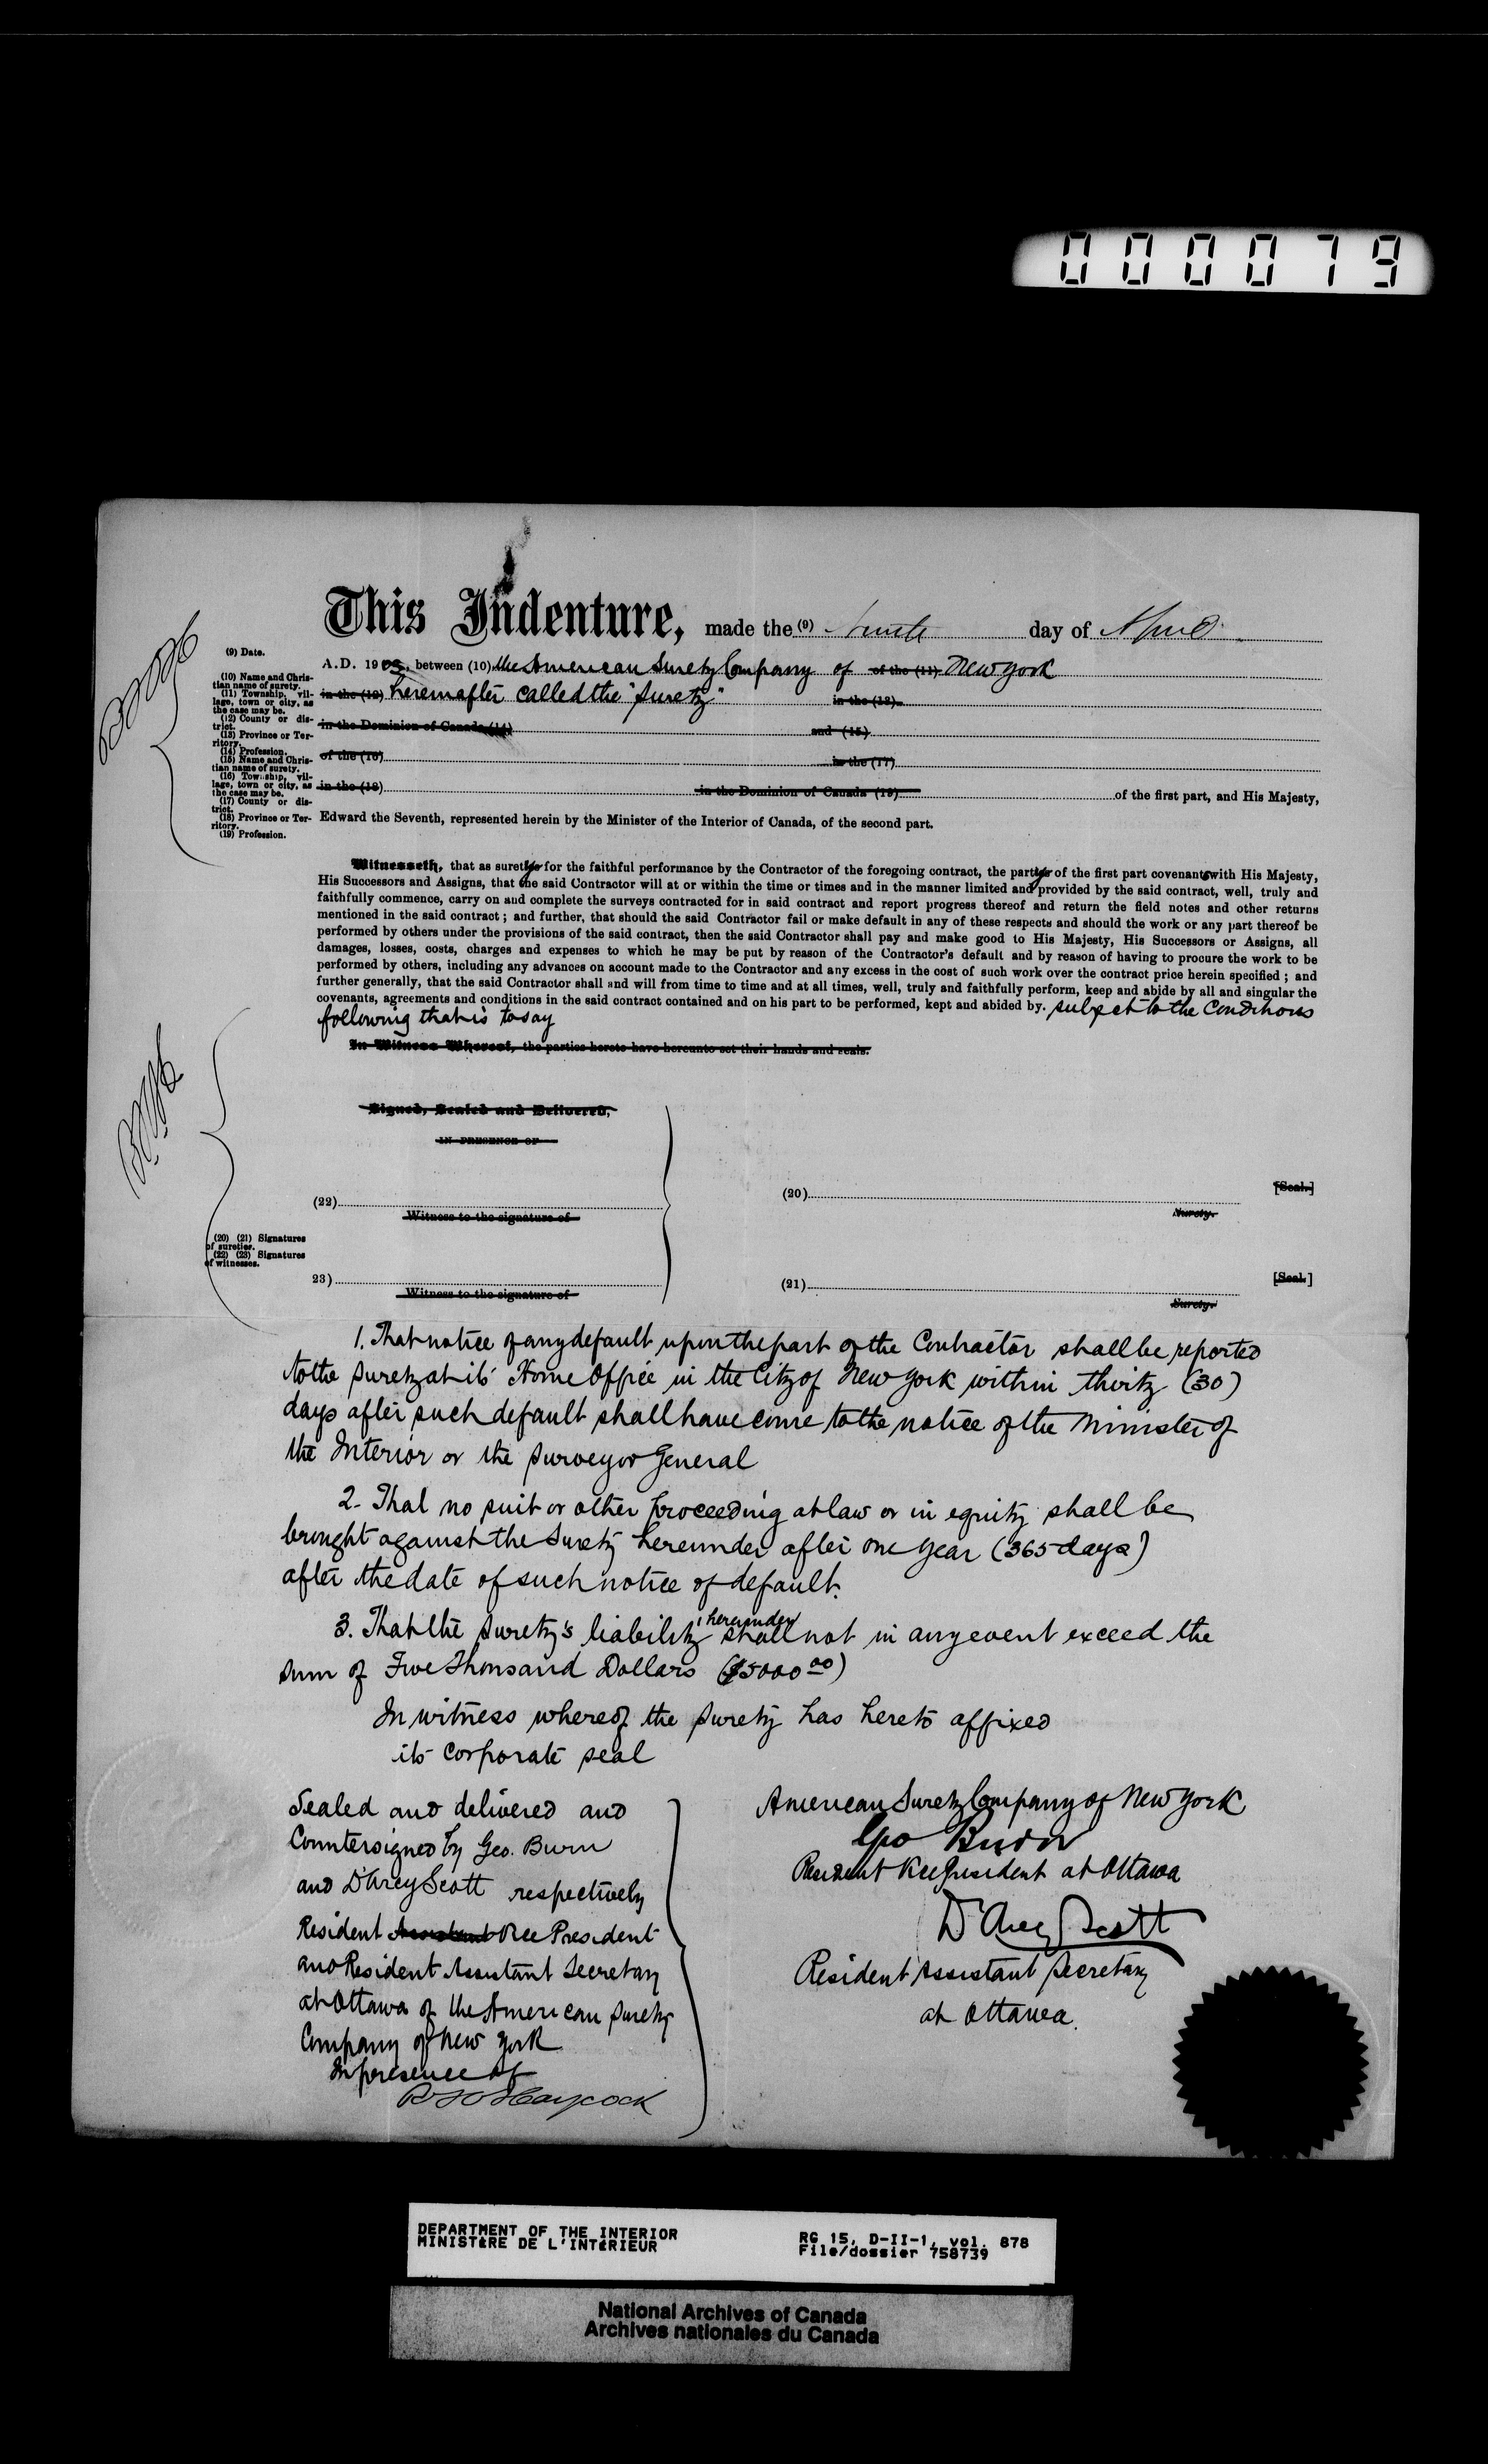 000079
This Indenture, made the (9) day of April
A.D. 1903, between (10) the American Surety Company of of the (11) New York
in the (12) hereinafter called the "Surety" in the (13)
in the Dominion of Canada (14) and (15)
of the (16) in the (17)
in the (18) in the Dominion of Canada (19) of the first part, and His Majesty,
Edward the Seventh, represented herein by the Minister of the Interior of Canada, of the second part.
(9) Date.
(10) Name and Chris-
tian name of surety.
(11) Township, vil-
lage, town or city, as
the case may be.
(12) County or dis-
trict.
(13) Province or Ter-
ritory.
(14) Profession.
(15) Name and Chris-
tian name of surety.
(16) Township, vil-
lage, town or city, as
the case may be.
(17) County or dis-
trict.
(18) Province or Ter-
ritory.
(19) Profession.
Witnesseth, that as surety for the faithful performance by the Contractor of the foregoing contract, the party of the first part covenants with His Majesty,
His Successors and Assigns, that the said Contractor will at or within the time or times and in the manner limited and provided by the said contract, well, truly and
faithfully commence, carry on and complete the surveys contracted for in said contract and report progress thereof and return the field notes and other returns
mentioned in the said contract; and further, that should the said Contractor fail or make default in any of these respects and should the work or any part thereof be
performed by others under the provisions of the said contract, then the said Contractor shall pay and make good to His Majesty, His Successors or Assigns, all
damages, losses, costs, charges and expenses to which he may be put by reason of the Contractor's default and by reason of having to procure the work to be
performed by others, including any advances on account made to the Contractor and any excess in the cost of such work over the contract price herein specified; and
further generally, that the said Contractor shall and will from time to time and at all times, well, truly and faithfully perform, keep and abide by all and singular the
covenants, agreements and conditions in the said contract contained and on his part to be performed, kept and abided by. subject to the Conditions
following that is to say
In Witness Whereof, the parties hereto have hereunto set their hands and seals.
Signed, Sealed and Delivered,
IN PRESENCE OF
(22) (20) [Seal.]
Witness to the signature of Surety.
(20) (21) Signatures
of sureties.
(22) (23) Signatures
of witnesses.
23) (21) [Seal.]
Witness to the signature of Surety.
1. That notice of any default upon the part of the Contractor shall be reported
to the Surety at its Home Office in the City of New York within thirty (30)
days after such default shall have come to the notice of the Minister of
the Interior or the Surveyor General
2. That no suit or other proceeding at law or in equity shall be
brought against the Surety hereunder after one year (365 days)
after the date of such notice of default.
3. That the Surety's liability hereunder shall not in any event exceed the
sum of Five Thousand Dollars ($5000 00)
In witness whereof the Surety has hereto affixed
its corporate seal
Sealed and delivered and
Countersigned by Geo. Burn
and D'Arcy Scott respectively
Resident Assistant Vice President
and Resident Assistant Secretary
at Ottawa of the American Surety
Company of New York
In presence of
Haycock
American Surety Company of New York
Geo Burn
Resident Vice President at Ottawa
D'Arcy Scott
Resident Assistant Secretary
at Ottawa.
DEPARTMENT OF THE INTERIOR
MINISTÈRE DE L'INTÉRIEUR
RG 15, D-II-1, vol. 878
File/dossier 758739
National Archives of Canada
Archives nationales du Canada